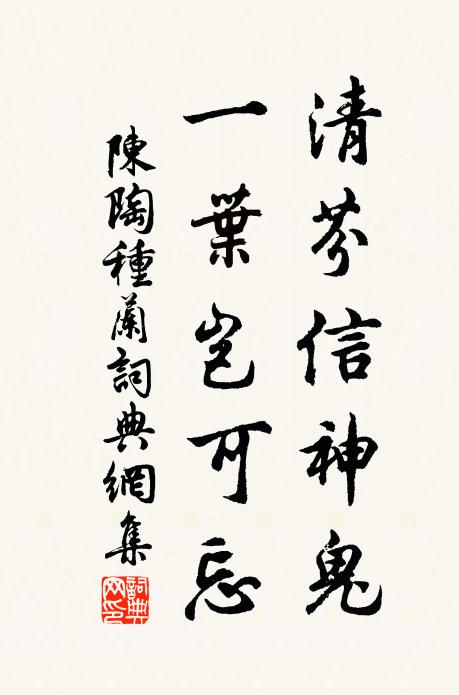 清芬信神鬼
一葉豈可忘
陳陶種蘭詞典網集
詞典
网印